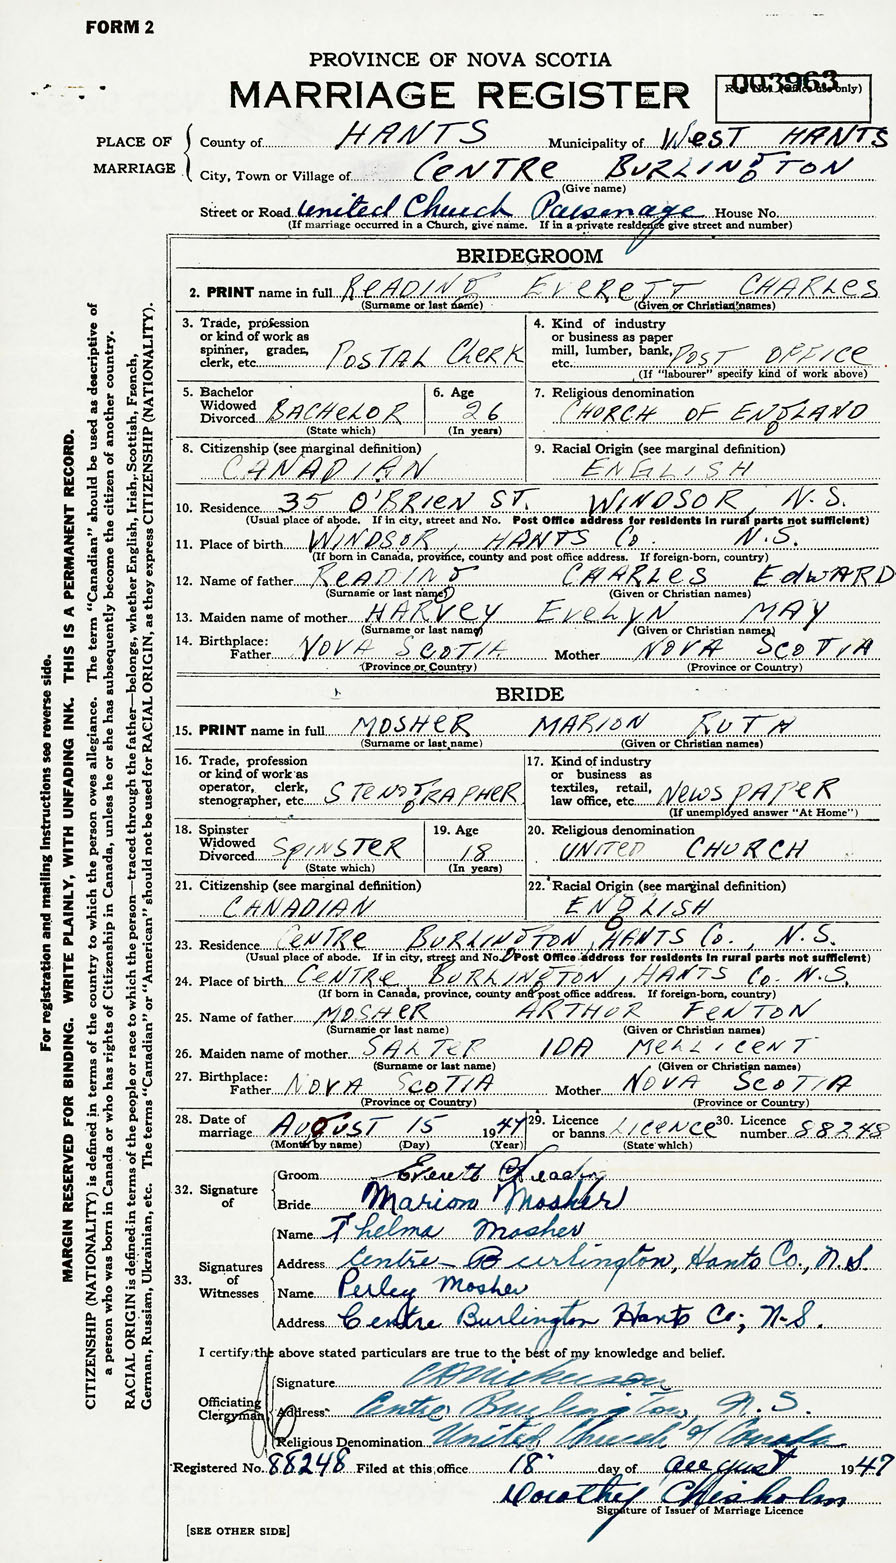 FORM 2
PROVINCE OF NOVA SCOTIA
MARRIAGE REGISTER
003963
Reg. No. (Office use only)
PLACE OF MARRIAGE
County of HANTS Municipality of West HANTS
City, Town or Village of CENTRE BURLINGTON
(Give name)
Street or Road United Church Parsonage House No.
(If marriage occurred in a Church, give name. If in a private residence give street and number)
BRIDEGROOM
2. PRINT name in full READING EVERETT CHARLES
(Surname or last name) (Given or Christian names)
3. Trade, profession or kind of work as spinner, grader, clerk, etc. POSTAL CLERK
4. Kind of industry or business as paper mill, lumber, bank, etc. POST OFFICE
(If "labourer" specify kind of work above)
5. Bachelor Widowed Divorced BACHELOR
(State which)
6. Age 26
(In years)
7. Religious denomination
CHURCH OF ENGLAND
8. Citizenship (see marginal definition)
CANADIAN
9. Racial Origin (see marginal definition)
ENGLISH
10. Residence 35 O'BRIEN ST. WINDSOR, N.S.
(Usual place of abode. If in city, street and No. Post Office address for residents in rural parts not sufficient)
11. Place of birth WINDSOR, HANTS Co. N.S.
(If born in Canada, province, county and post office address. If foreign-born, country)
12. Name of father READING CHARLES EDWARD
(Surname or last name) (Given or Christian names)
13. Maiden name of mother HARVEY EVELYN MAY
(Surname or last name) (Given or Christian names)
14. Birthplace: Father NOVA SCOTIA Mother NOVA SCOTIA
(Province or Country) (Province or Country)
BRIDE
15. PRINT name in full MOSHER MARION RUTH
(Surname or last name) (Given or Christian names)
16. Trade, profession or kind of work as operator, clerk, stenographer, etc. STENOGRAPHER
17. Kind of industry or business as textiles, retail, law office, etc. NEWSPAPER
(If unemployed answer "At Home")
18. Spinster Widowed Divorced SPINSTER
(State which)
19. Age 18
(In years)
20. Religious denomination
UNITED CHURCH
21. Citizenship (see marginal definition)
CANADIAN
22. Racial Origin (see marginal definition)
ENGLISH
23. Residence CENTRE BURLINGTON, HANTS Co., N.S.
(Usual place of abode. If in city, street and No. Post Office address for residents in rural parts not sufficient)
24. Place of birth CENTRE BURLINGTON, HANTS Co. N.S.
(If born in Canada, province, county and post office address. If foreign-born, country)
25. Name of father MOSHER ARTHUR FENTON
(Surname or last name) (Given or Christian names)
26. Maiden name of mother SALTER IDA MELLICENT
(Surname or last name) (Given or Christian names)
27. Birthplace: Father NOVA SCOTIA Mother NOVA SCOTIA
(Province or Country) (Province or Country)
28. Date of marriage AUGUST 15 1947
(Month by name) (Day) (Year)
29. Licence or banns LICENCE
(State which)
30. Licence number 88248
32. Signature of
Groom Everett C Reading
Bride Marion Mosher
33. Signatures of Witnesses
Name Thelma Mosher
Address Centre Burlington, Hants Co., N.S.
Name Perley Mosher
Address Centre Burlington Hants Co; N-S.
I certify the above stated particulars are true to the best of my knowledge and belief.
Officiating Clergyman
Signature
Address Centre Burlington, N.S.
Religious Denomination United Church of Canada
Registered No. 88248 Filed at this office 18 day of august 1947
Dorothy Chisholm
Signature of Issuer of Marriage Licence
[SEE OTHER SIDE]
For registration and mailing instructions see reverse side.
MARGIN RESERVED FOR BINDING. WRITE PLAINLY, WITH UNFADING INK. THIS IS A PERMANENT RECORD.
CITIZENSHIP (NATIONALITY) is defined in terms of the country to which the person owes allegiance. The term "Canadian" should be used as descriptive of
a person who was born in Canada or who has rights of Citizenship in Canada, unless he or she has subsequently become the citizen of another country.
RACIAL ORIGIN is defined in terms of the people or race to which the person—traced through the father—belongs, whether English, Irish, Scottish, French,
German, Russian, Ukrainian, etc. The terms "Canadian" or "American" should not be used for RACIAL ORIGIN, as they express CITIZENSHIP (NATIONALITY).